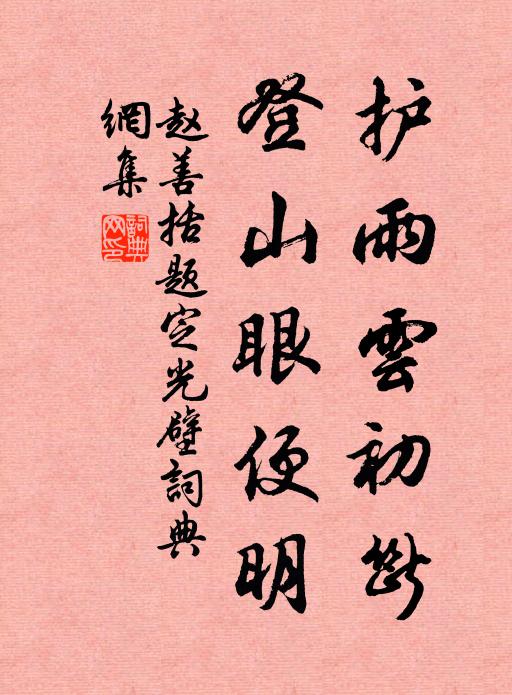 护雨雲初斷
登山眼便明
赵善括题定光壁詞典
網集
詞典
网印